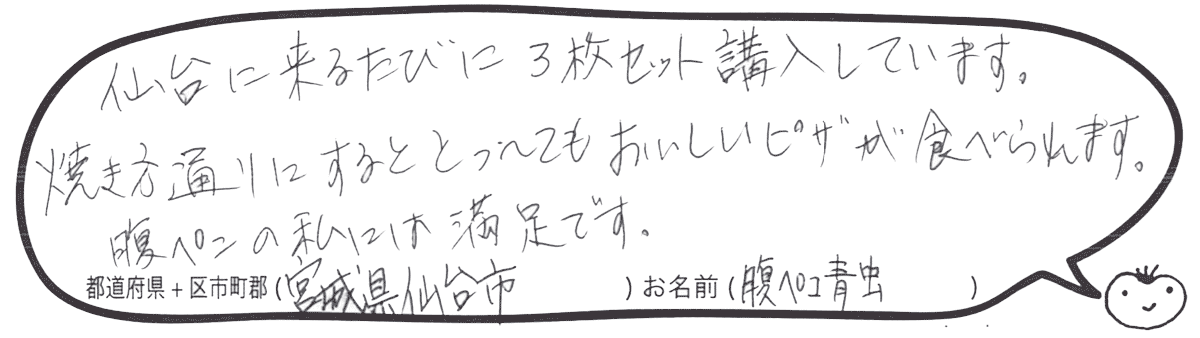 仙台に来るたびに3枚セット講入しています。
焼き方通りにするととってもおいしいピザが食べられます。
腹ペコの私には満足です。
都道府県+区市町郡(宮城県仙台市 )お名前(腹ペコ青虫 )